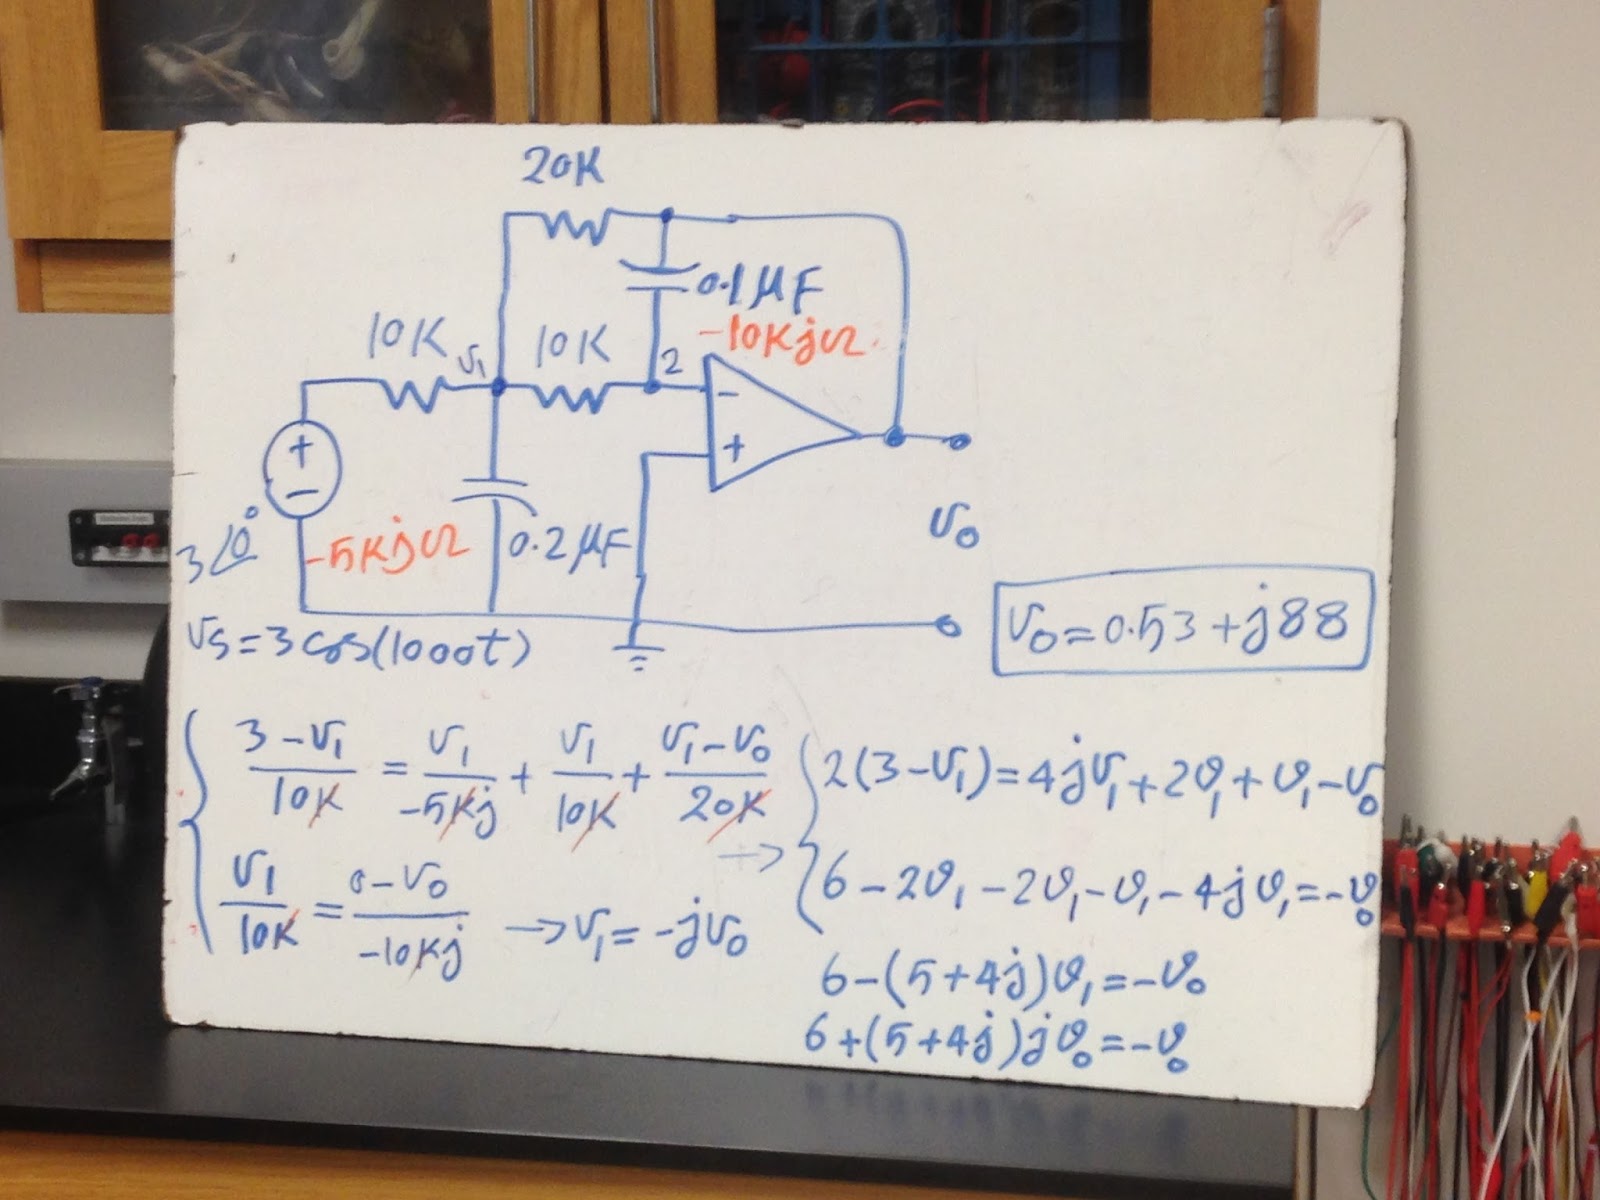 20K
0.1μF
-10KjΩ
10K
v₁
10K
2
-
+
+
-
3∠0°
-5KjΩ
0.2μF
v₀
vs=3cos(1000t)
v₀=0.53+j88
(3-v₁)/10K = v₁/-5Kj + v₁/10K + (v₁-v₀)/20K
v₁/10K = (0-v₀)/-10Kj → v₁=-jv₀
→ 2(3-v₁)=4jv₁+2v₁+v₁-v₀
6-2v₁-2v₁-v₁-4jv₁=-v₀
6-(5+4j)v₁=-v₀
6+(5+4j)jv₀=-v₀